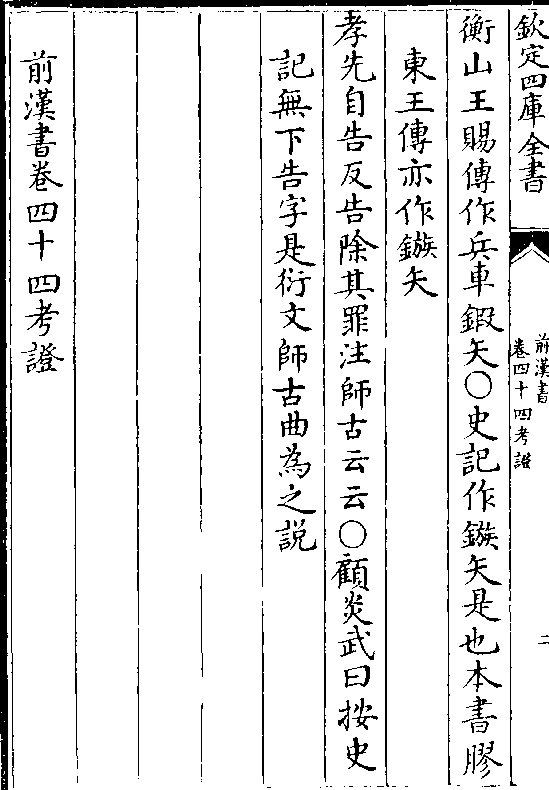 欽定四庫全書
前漢書
卷四十四考證
二
衡山王賜傳作兵車鍜矢○史記作鏃矢是也本書膠
東王傳亦作鏃矢
孝先自告反告除其罪注師古云云○顧炎武曰按史
記無下告字是衍文師古曲為之説
前漢書卷四十四考證